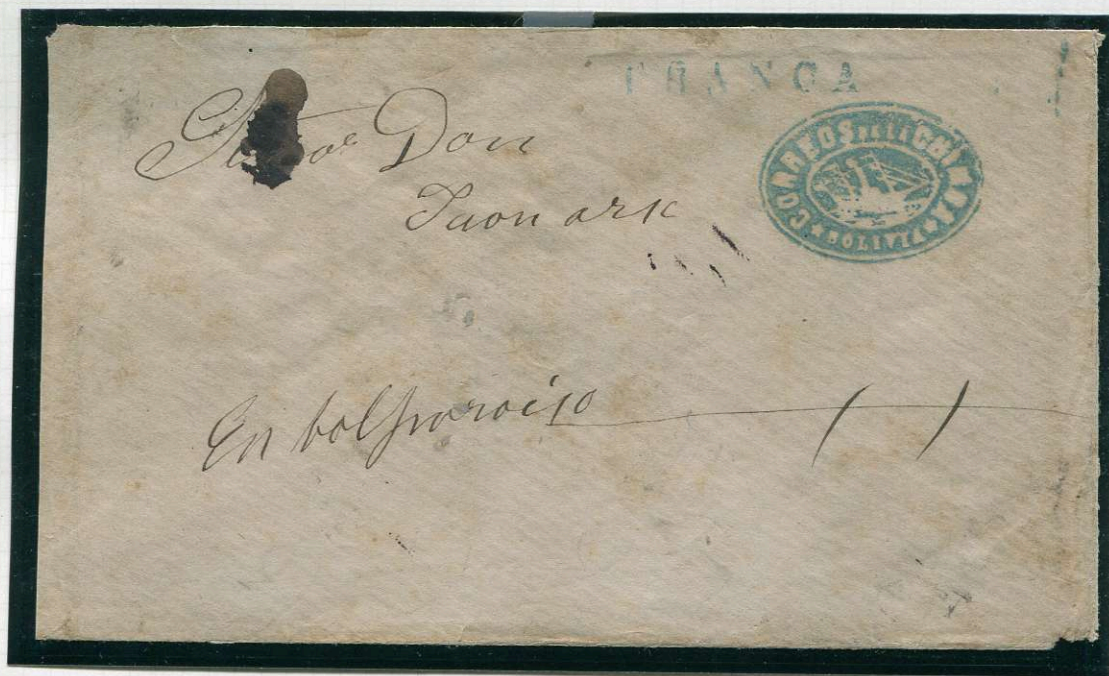 FRANCA
CORREOS DE LA
BOLIVIA
Señor Don
Juan
En balparaiso